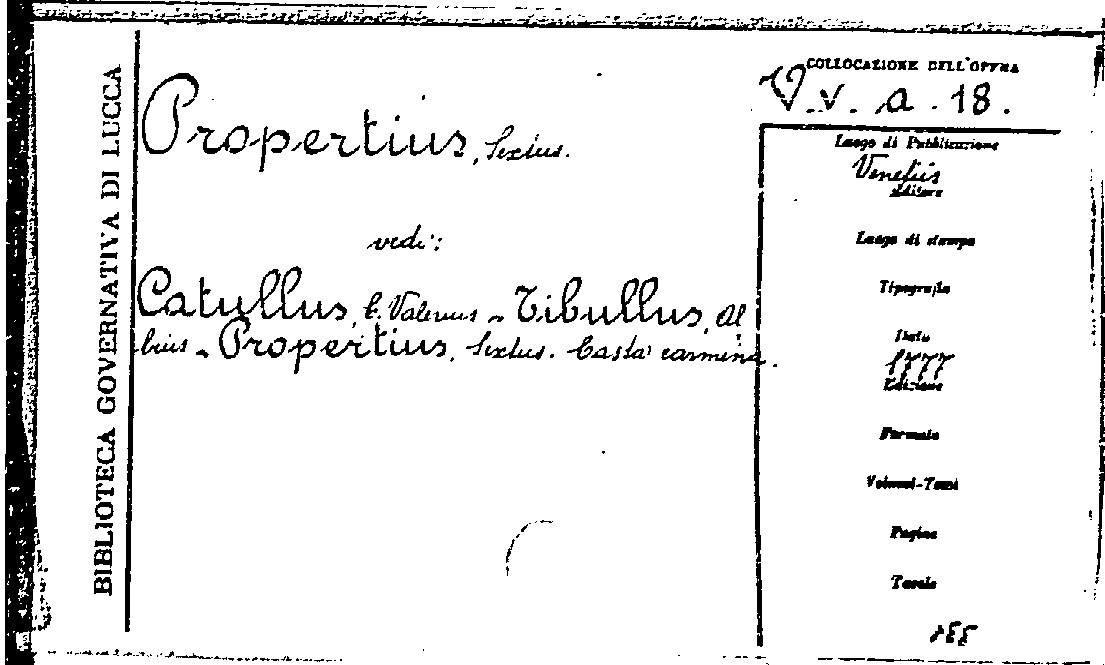 BIBLIOTECA GOVERNATIVA DI LUCCA
Propertius, Sextus.
vedi:
Catullus, C. Valerius - Tibullus, Al
bius - Propertius, Sextus. Casta carmina.
COLLOCAZIONE DELL'OPERA
V. a. 18.
Luogo di Pubblicazione
Venetiis
Editore
Luogo di stampa
Tipografia
Data
Edizione
Formato
Volumi-Tomi
Pagine
Tavole